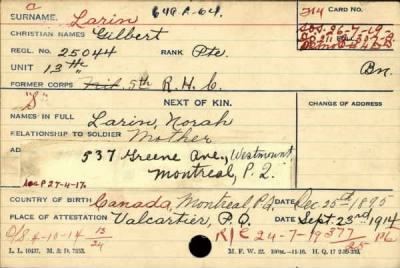 a
SURNAME. Larin 649.A-64. 214 CARD NO.
CHRISTIAN NAMES Gilbert
REGL. NO. 25044 RANK Pte.
UNIT 13th Bn.
FORMER CORPS 5th R.H.C.
"S" NEXT OF KIN. CHANGE OF ADDRESS
NAMES IN FULL Larin, Norah
RELATIONSHIP TO SOLDIER Mother
AD 537 Greene Ave., Westmount,
Montreal, P.Q.
27-4-17.
COUNTRY OF BIRTH Canada, Montreal, P.Q. Dec 25th 1895
PLACE OF ATTESTATION Valcartier, P.Q. Sept. 23rd 1914
O/S 4-10-14 13/24 R/C 24-7-19 377 PL
25
L. L. 10437. M. & D. 7353. M. F. W. 22.